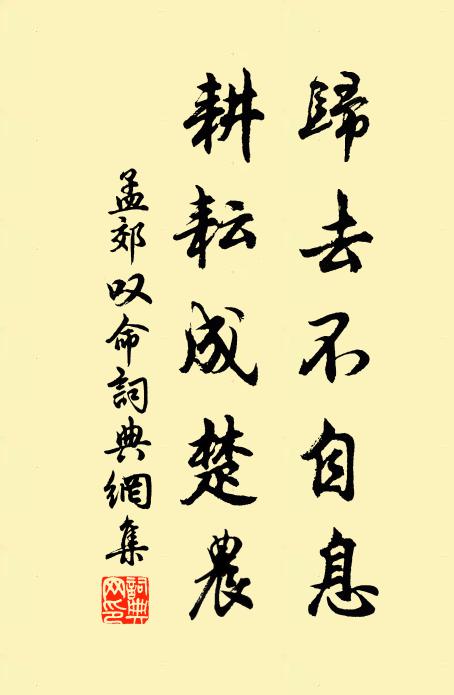 歸去不自息
耕耘成楚農
孟郊叹命詞典網集
詞典網印